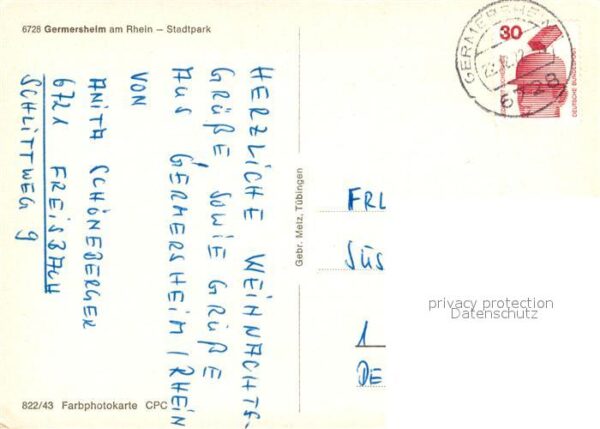 6728 Germersheim am Rhein – Stadtpark
HERZLICHE WEIHNACHTS-
GRÜßE SOWIE GRÜßE
AUS GERMERSHEIM/RHEIN
VON
ANITA SCHÖNEBERGER
6721 FREISBACH
SCHLITTWEG 9
Gebr. Metz, Tübingen
822/43 Farbphotokarte CPC
GERMERSHEIM
6728
30
DEUTSCHE BUNDESPOST
FRL
SÜS
1
DE
privacy protection
Datenschutz